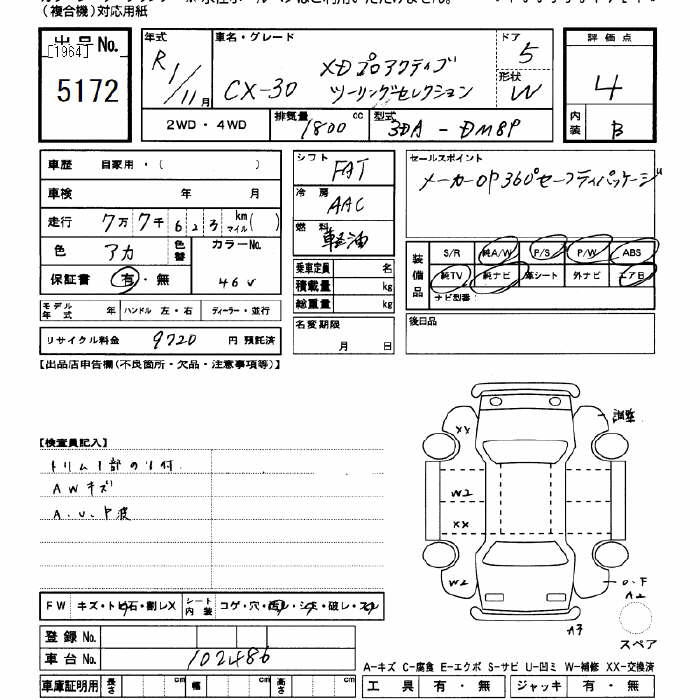 (複合機)対応用紙
出品No.
[1964]
5172
年式
R1/11月
車名・グレード
CX-30
XDプロアクティブ
ツーリングセレクション
ドア
5
形状
W
評価点
4
内装
B
2WD・4WD
排気量
1800
cc
型式
3DA-DM8P
車歴 自家用・( )
車検 年 月
走行 7万7千623 km マイル( )
色 アカ 色替 カラーNo.
46V
保証書 有・無
モデル年式 年 ハンドル 左・右 ディーラー・並行
リサイクル料金 9720 円 預託済
シフト FAT
冷房 AAC
燃料 軽油
乗車定員 名
積載量 kg
総重量 kg
名変期限
月 日
セールスポイント
メーカーOP360°セーフティパッケージ
装備品
S/R 純A/W P/S P/W ABS
純TV 純ナビ 革シート 外ナビ エアB
ナビ型番:
後日品
【出品店申告欄(不良箇所・欠品・注意事項等)】
【検査員記入】
トリム1部のり付
AWキズ
A.U.P波
FW キズ・トビ石・割レX シート内装 コゲ・穴・汚レ・シミ・破レ・スレ
登録No.
車台No. 102486
車庫証明用 長さ cm 幅 cm 高さ cm
調整
XX
W2
XX
W2
A2
A3
スペア
A-キズ C-腐食 E-エクボ S-サビ U-凹ミ W-補修 XX-交換済
工具 有・無 ジャッキ 有・無